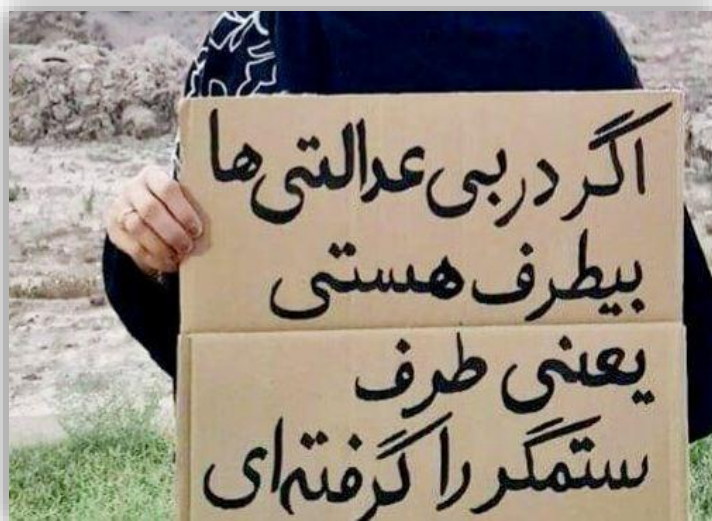 اگر در بی عدالتی‌ها
بیطرف هستی
یعنی طرف
ستمگر را گرفته‌ای